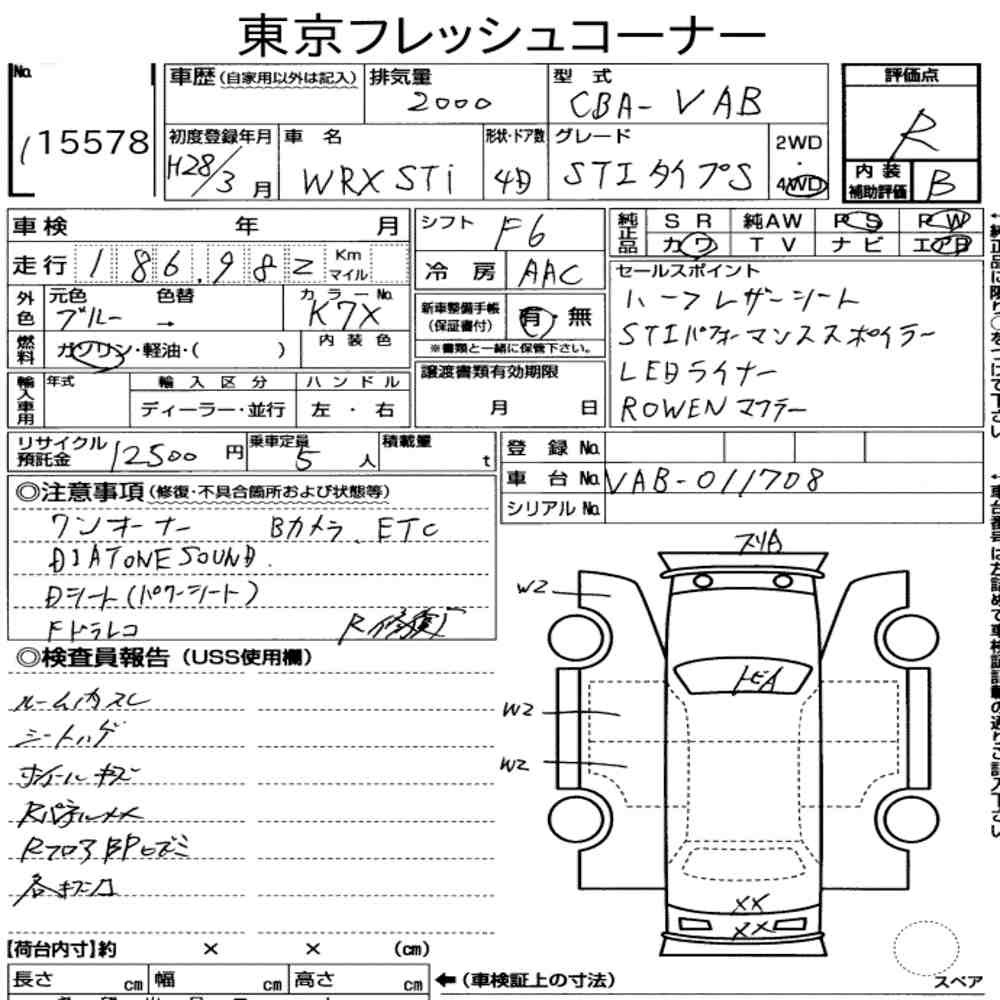 東京フレッシュコーナー
No.
15578
車歴(自家用以外は記入)
排気量
2000
型式
CBA-VAB
評価点
R
初度登録年月
H28/3月
車名
WRX STi
形状・ドア数
4D
グレード
STIタイプS
2WD・4WD
内装補助評価
B
車検 年 月
シフト
F6
純正品
SR 純AW PS PW
カワ TV ナビ エアB
走行 186,982 Km マイル
冷房
AAC
セールスポイント
ハーフレザーシート
STIパフォーマンススポイラー
LEDライナー
ROWENマフラー
外色
元色 色替 カラーNo.
ブルー → K7X
新車整備手帳(保証書付)
有・無
※書類と一緒に保管下さい。
燃料
ガソリン・軽油・( )
内装色
譲渡書類有効期限
月 日
輸入車用
年式 輸入区分 ハンドル
ディーラー・並行 左・右
リサイクル預託金
12500円
乗車定員
5人
積載量
t
登録No.
車台No. VAB-011708
シリアルNo.
◎注意事項(修復・不具合箇所および状態等)
ワンオーナー Bカメラ、ETC
DIATONE SOUND.
Dシート(パワーシート)
Fドラレコ R修復
◎検査員報告(USS使用欄)
ルーム内スレ
シートハゲ
ホイールキズ
Rフロア BPヒズミ
各キズ凹
スリA
W2
トビA
W2
W2
XX
XX
【荷台内寸】約 × × (cm)
長さ cm 幅 cm 高さ cm
←(車検証上の寸法)
スペア